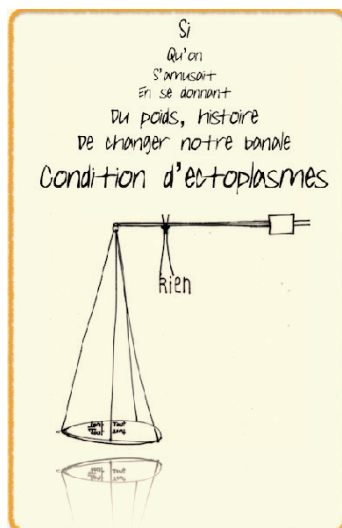 Si
Qu'on
S'amusait
En se donnant
Du poids, histoire
De changer notre banale
Condition d'ectoplasmes
Rien